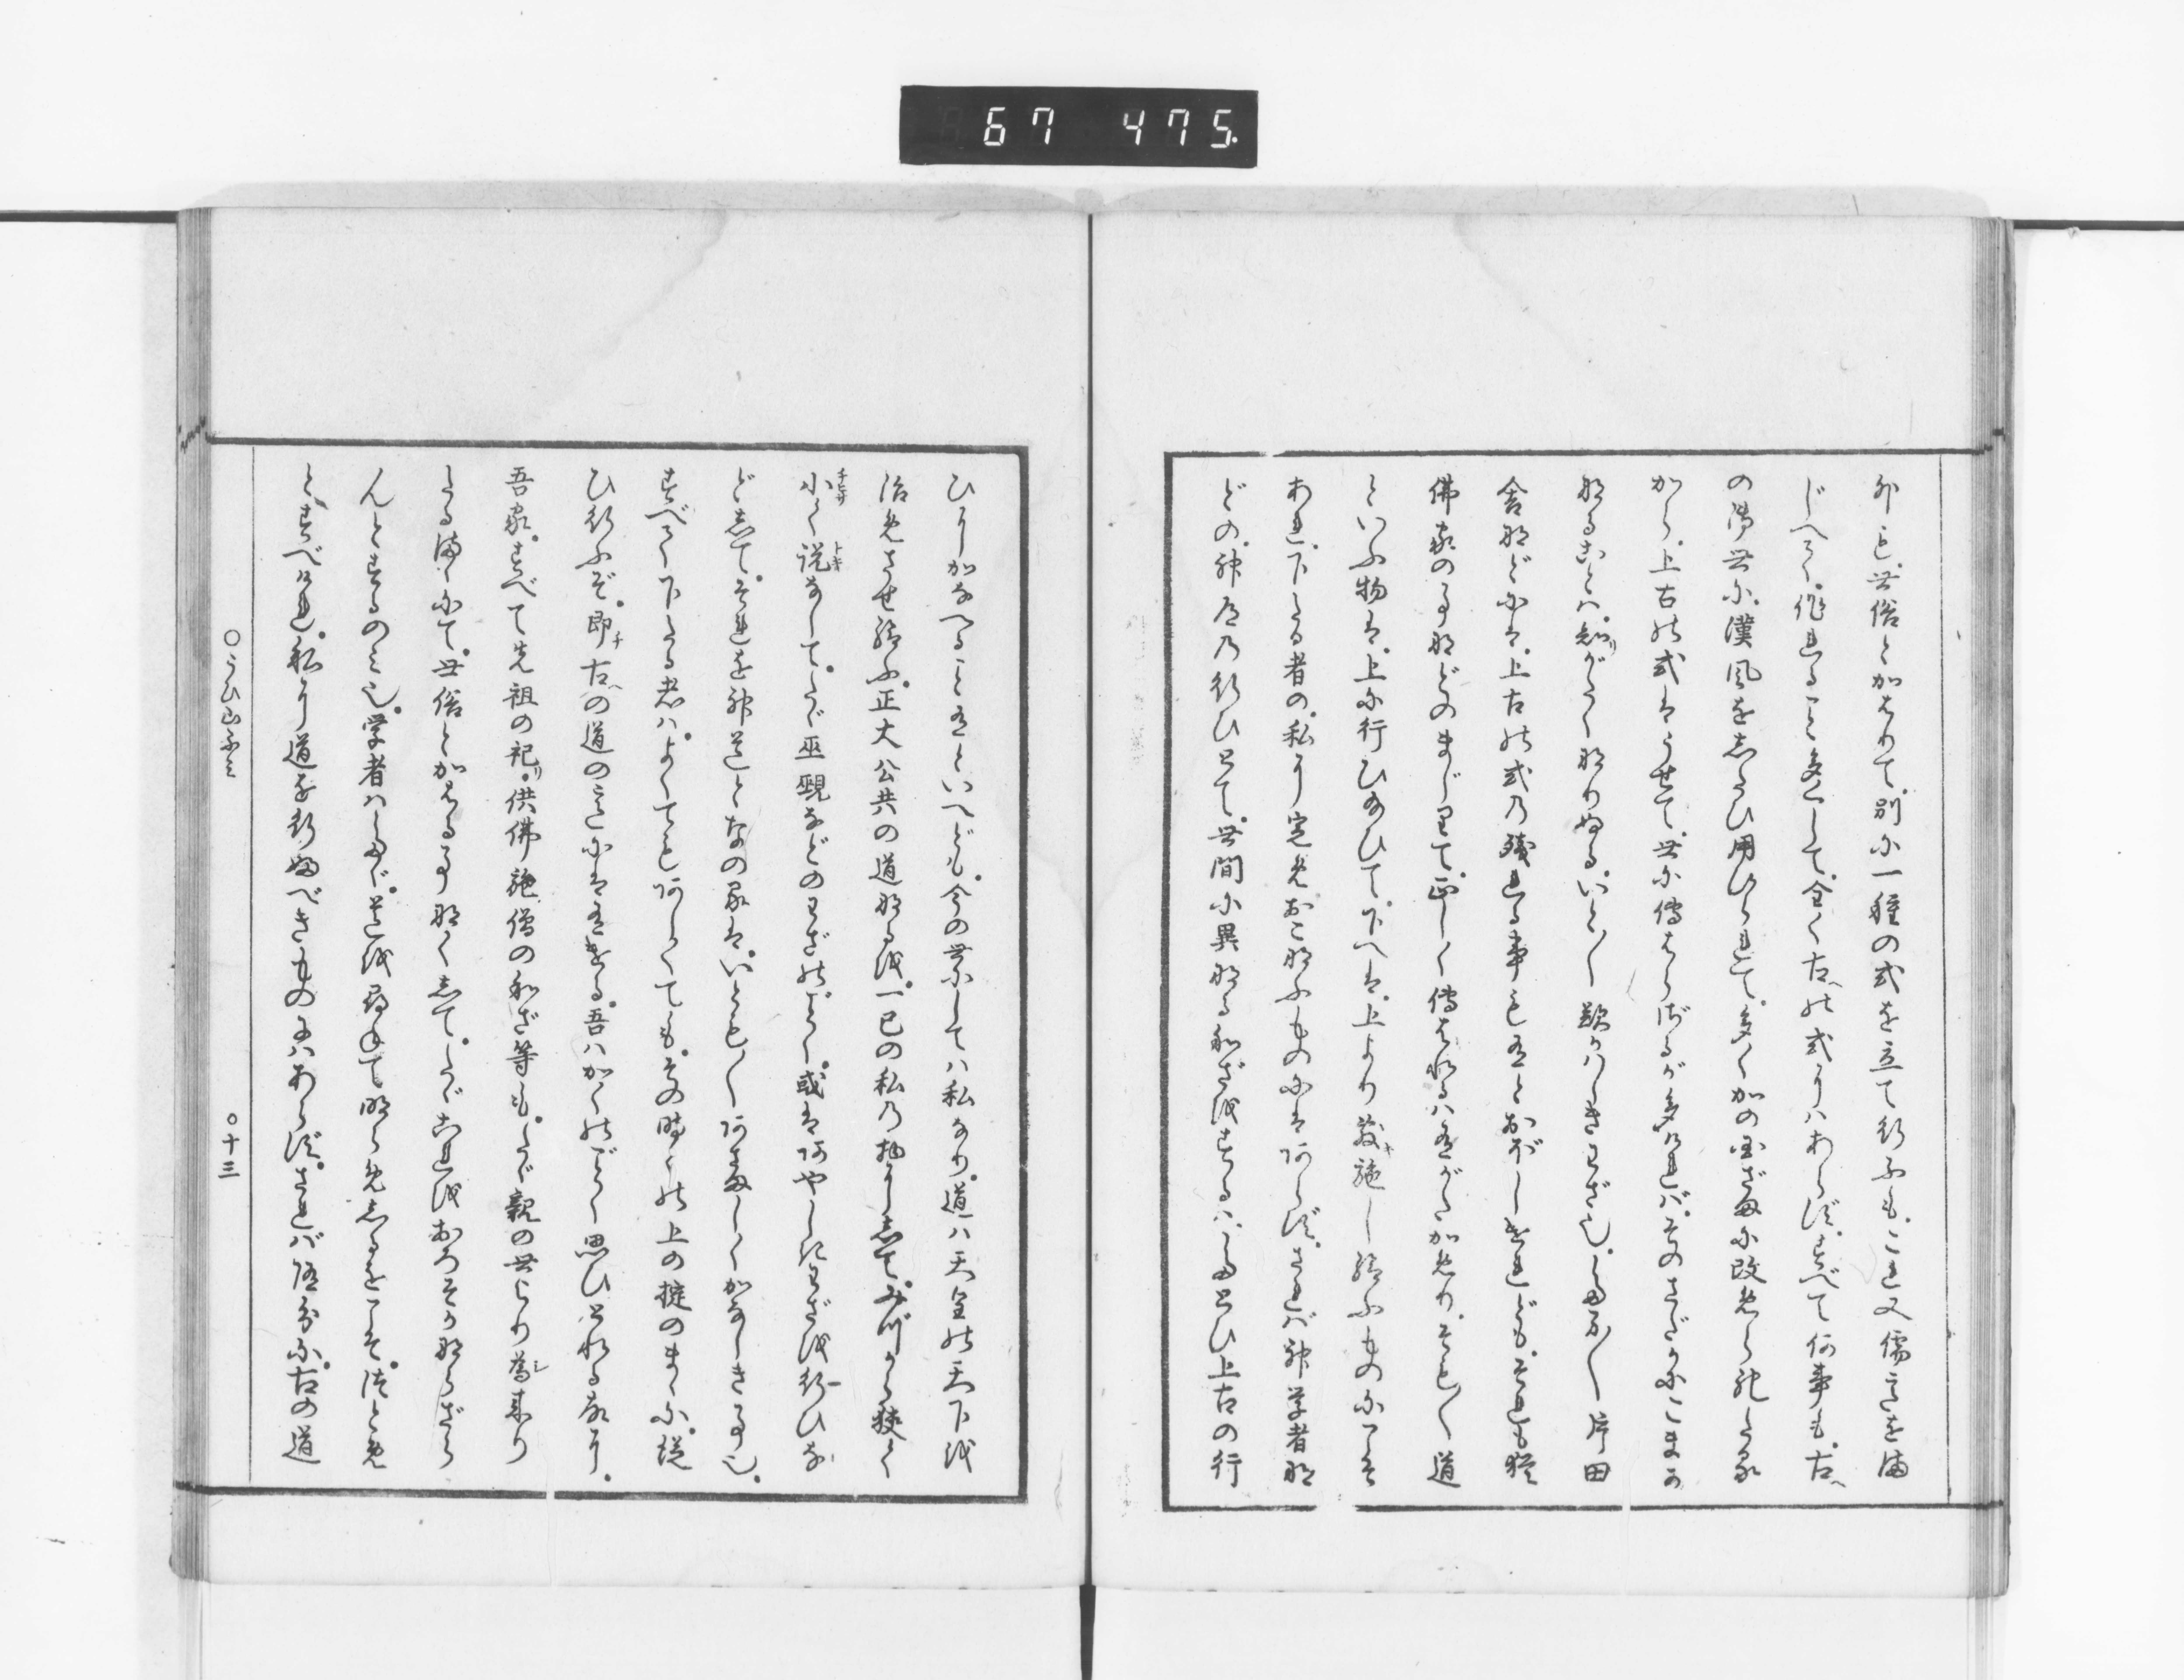 外も、世俗とかはりて、別に一種の式を立て行ふも、これ又儒意をま
じへて、作れること多くして、全く古ヘの式にはあらず、すべて何事も、古ヘ
の御世に、漢風をしたひ用ひられて、多くかの国ざまに改められたる
から、上古の式はうせて、世に傳はらざるが多ければ、そのさだかにこまか
なることは、知リがたくなりぬる、いと〳〵歎かはしきわざ也、たま〳〵片田
舎などには、上古の式の残れる事も有とおぼしけれども、それも猶
佛家の事などのまじりて、正しく傳はれるは有がたかめり、そも〳〵道
といふ物は、上に行ひ給ひて、下へは、上より敷キ施し給ふものにこそ
あれ、下たる者の、私に定めおこなふものにはあらず、されば神学者な
どの、神道の行ひとて、世間に異なるわざをするは、たとひ上古の行
ひにかなへること有といへども、今の世にしては私なり、道は天皇の天下を
治めさせ給ふ、正大公共の道なるを、一己の私の物にして、みづから狭く
小チヒサく説トキなして、たゞ巫覡などのわざのごとく、或はあやしきわざを行ひな
どして、それを神道となのるは、いとも〳〵あさましくかなしき事也、
すべて下たる者は、よくてもあしくても、その時々の上の掟のまゝに、従
ひ行ふぞ、即チ古ヘの道の意には有ける、吾はかくのごとく思ひとれる故に、
吾家、すべて先祖の祀リ、供佛施僧のわざ等も、たゞ親の世より為シ来り
たるまゝにて、世俗とかはる事なくして、たゞこれをおろそかならざら
んとするのみ也、学者はたゞ、道を尋ねて明らめしるをこそ、つとめ
とすべけれ、私に道を行ふべきものにはあらず、されば随分に、古の道
○うひ山ふみ
○十三
67 475.